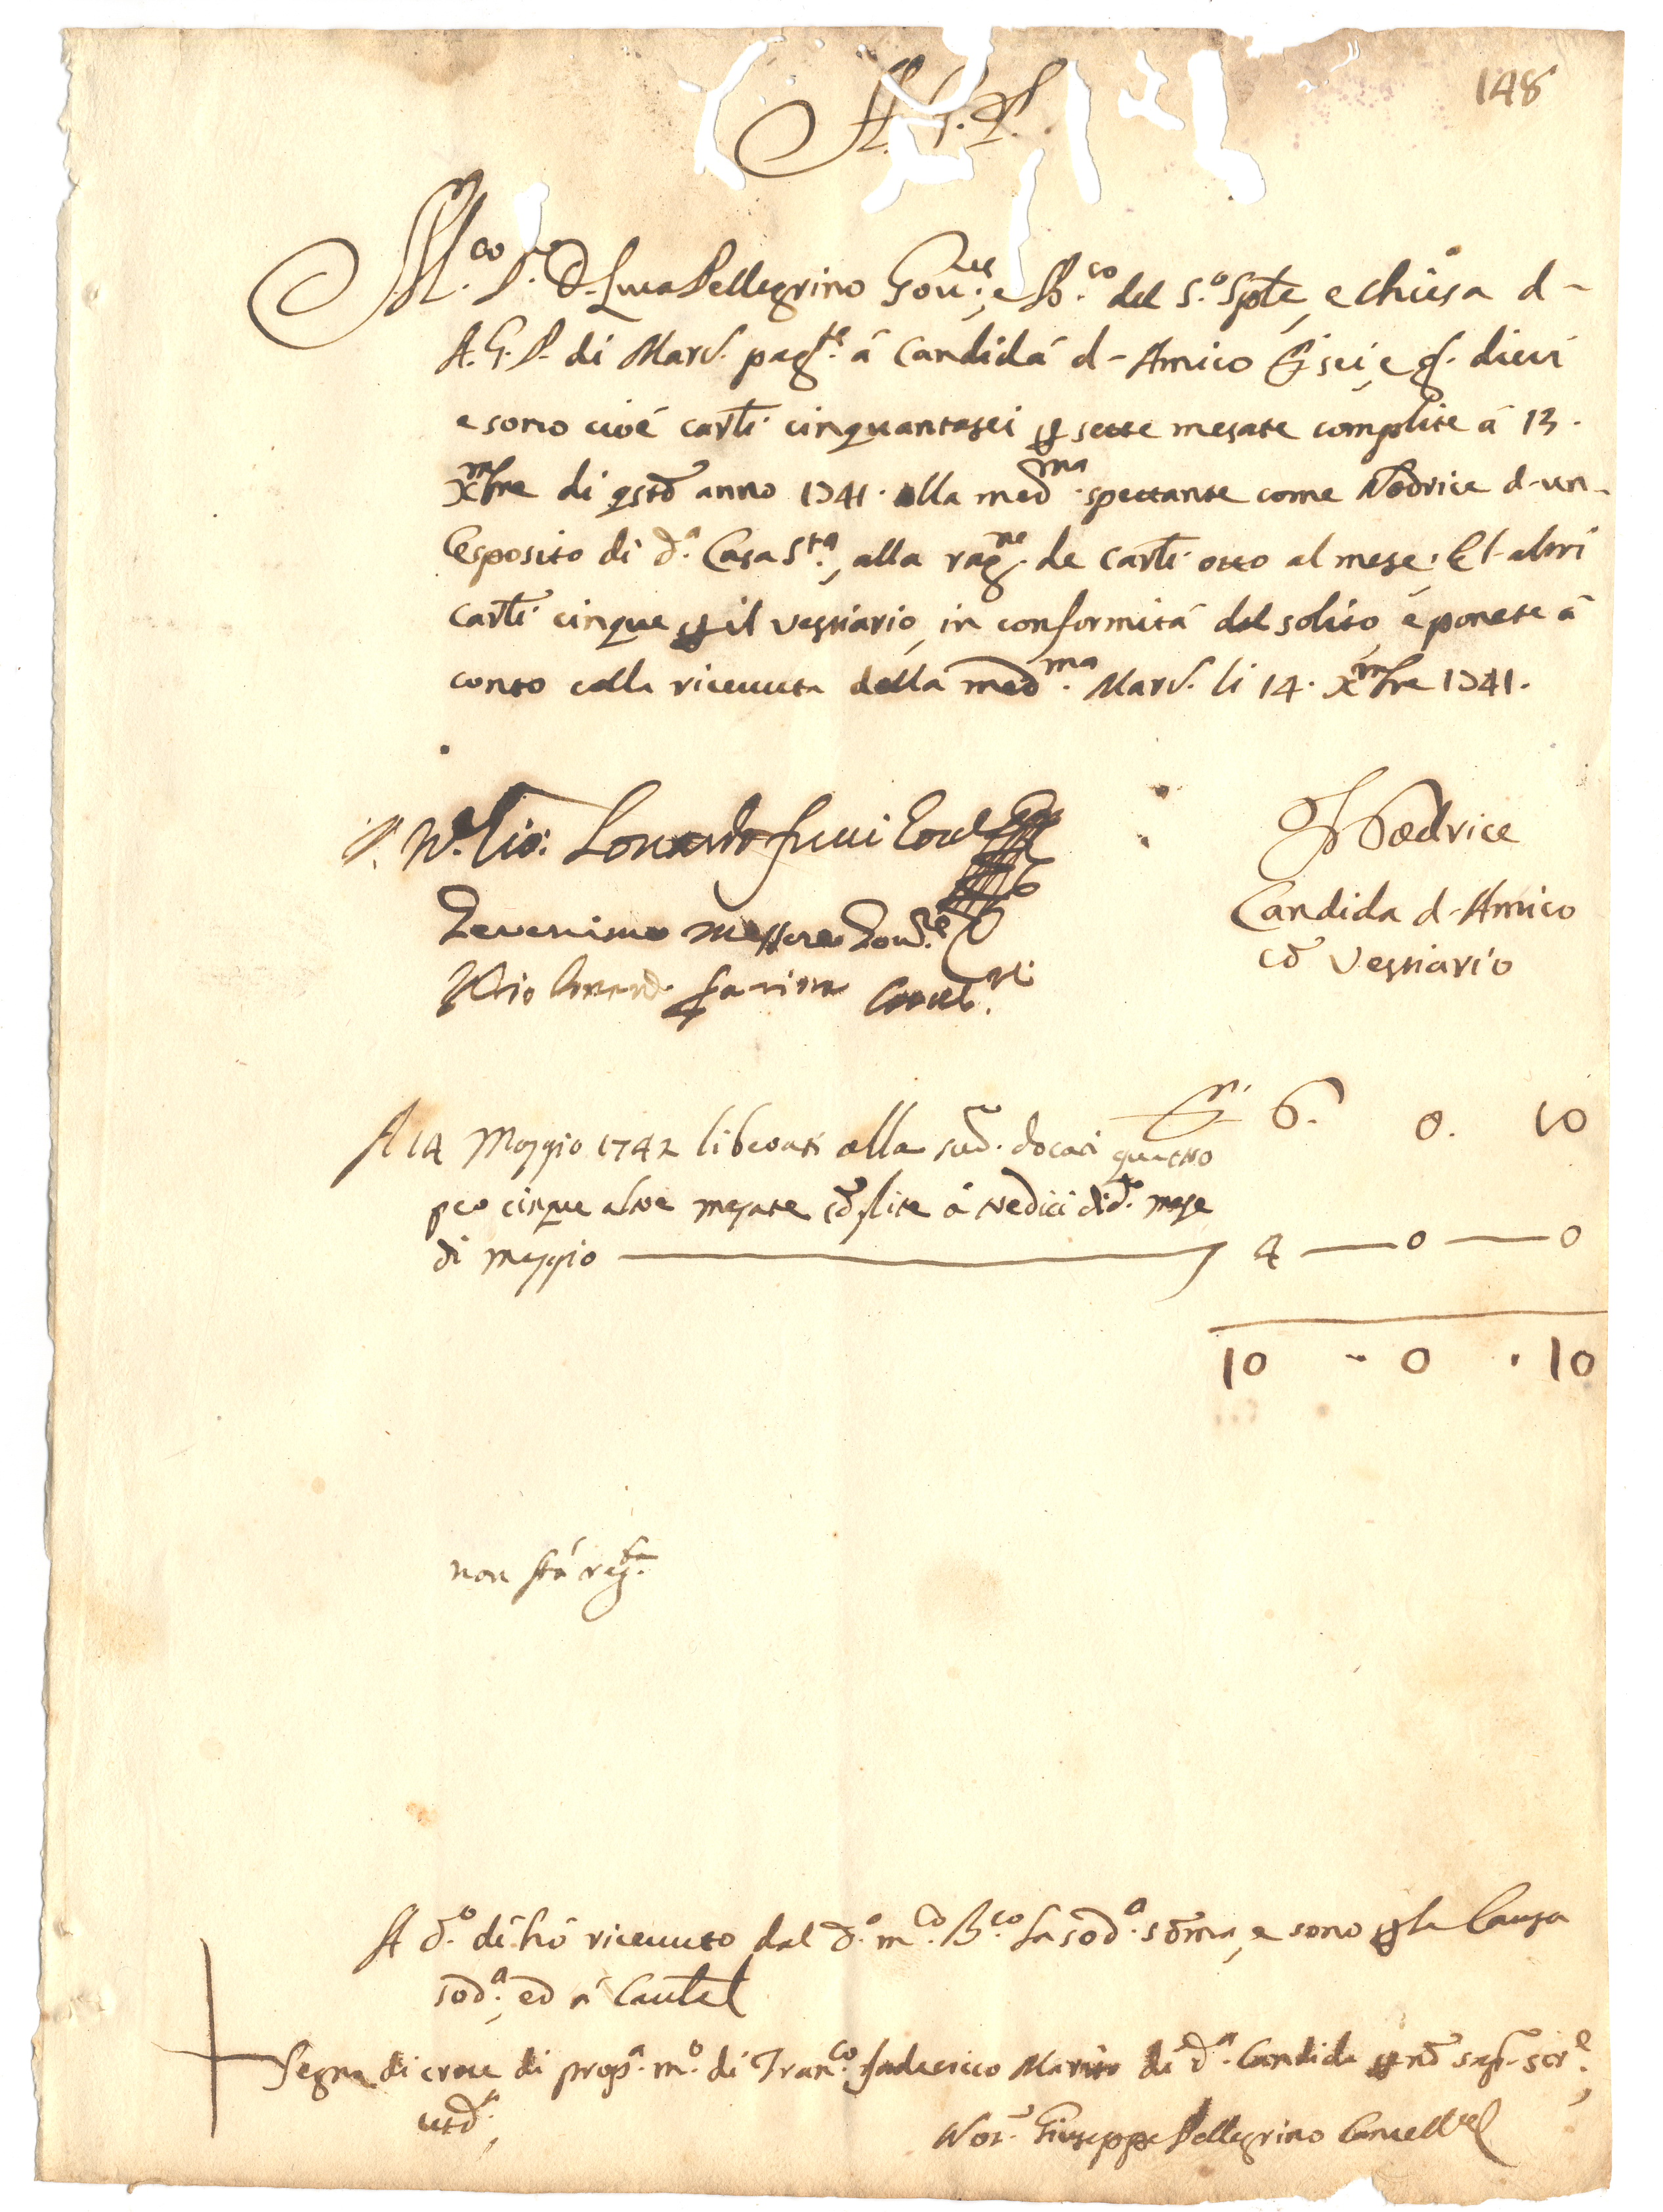 148
A. G. P.
M.co S.r D. Luca Pellegrino Gov.re, e Pb.co del S.o Spte, e chiesa d-
A. G. P. di Mard. pag.te à Candida d-Amico D. sei, e g. dieci
e sono cioè carti cinquantasei p sette mesate complite à 13.
Xmbre di qsto anno 1741. alla med.ma spettante come Nodrice d-un-
Esposito di d.a Casa S.ta, alla rag.ne de carti otto al mese: Et-altri
carti cinque p il vestiario, in conformità del solito, è ponete à
conto colla ricevuta della med.ma Mard. li 14. Xmbre 1741.
Nodrice
Candida d-Amico
cō Vestiario
D.ri 6. 0. 10
A 14 Maggio 1742 liberati alla sud. docati quattro
per cinque altre mesate cōplite à tredici di d.o mese
di maggio 4 — 0 — 0
10 - 0 . 10
non stà reg.ta
A d.o dì hò ricevuto dal d.o m.co B.co la sod.a sōma, e sono p la Causa
sod.a, ed à Cautel
Segno di croce di prop.a m.o di Fran.co Federicco Marito di d.a Candida p nō sap. scr.e,
utd.a,
Not. Giuseppe Pellegrino Cancell.re